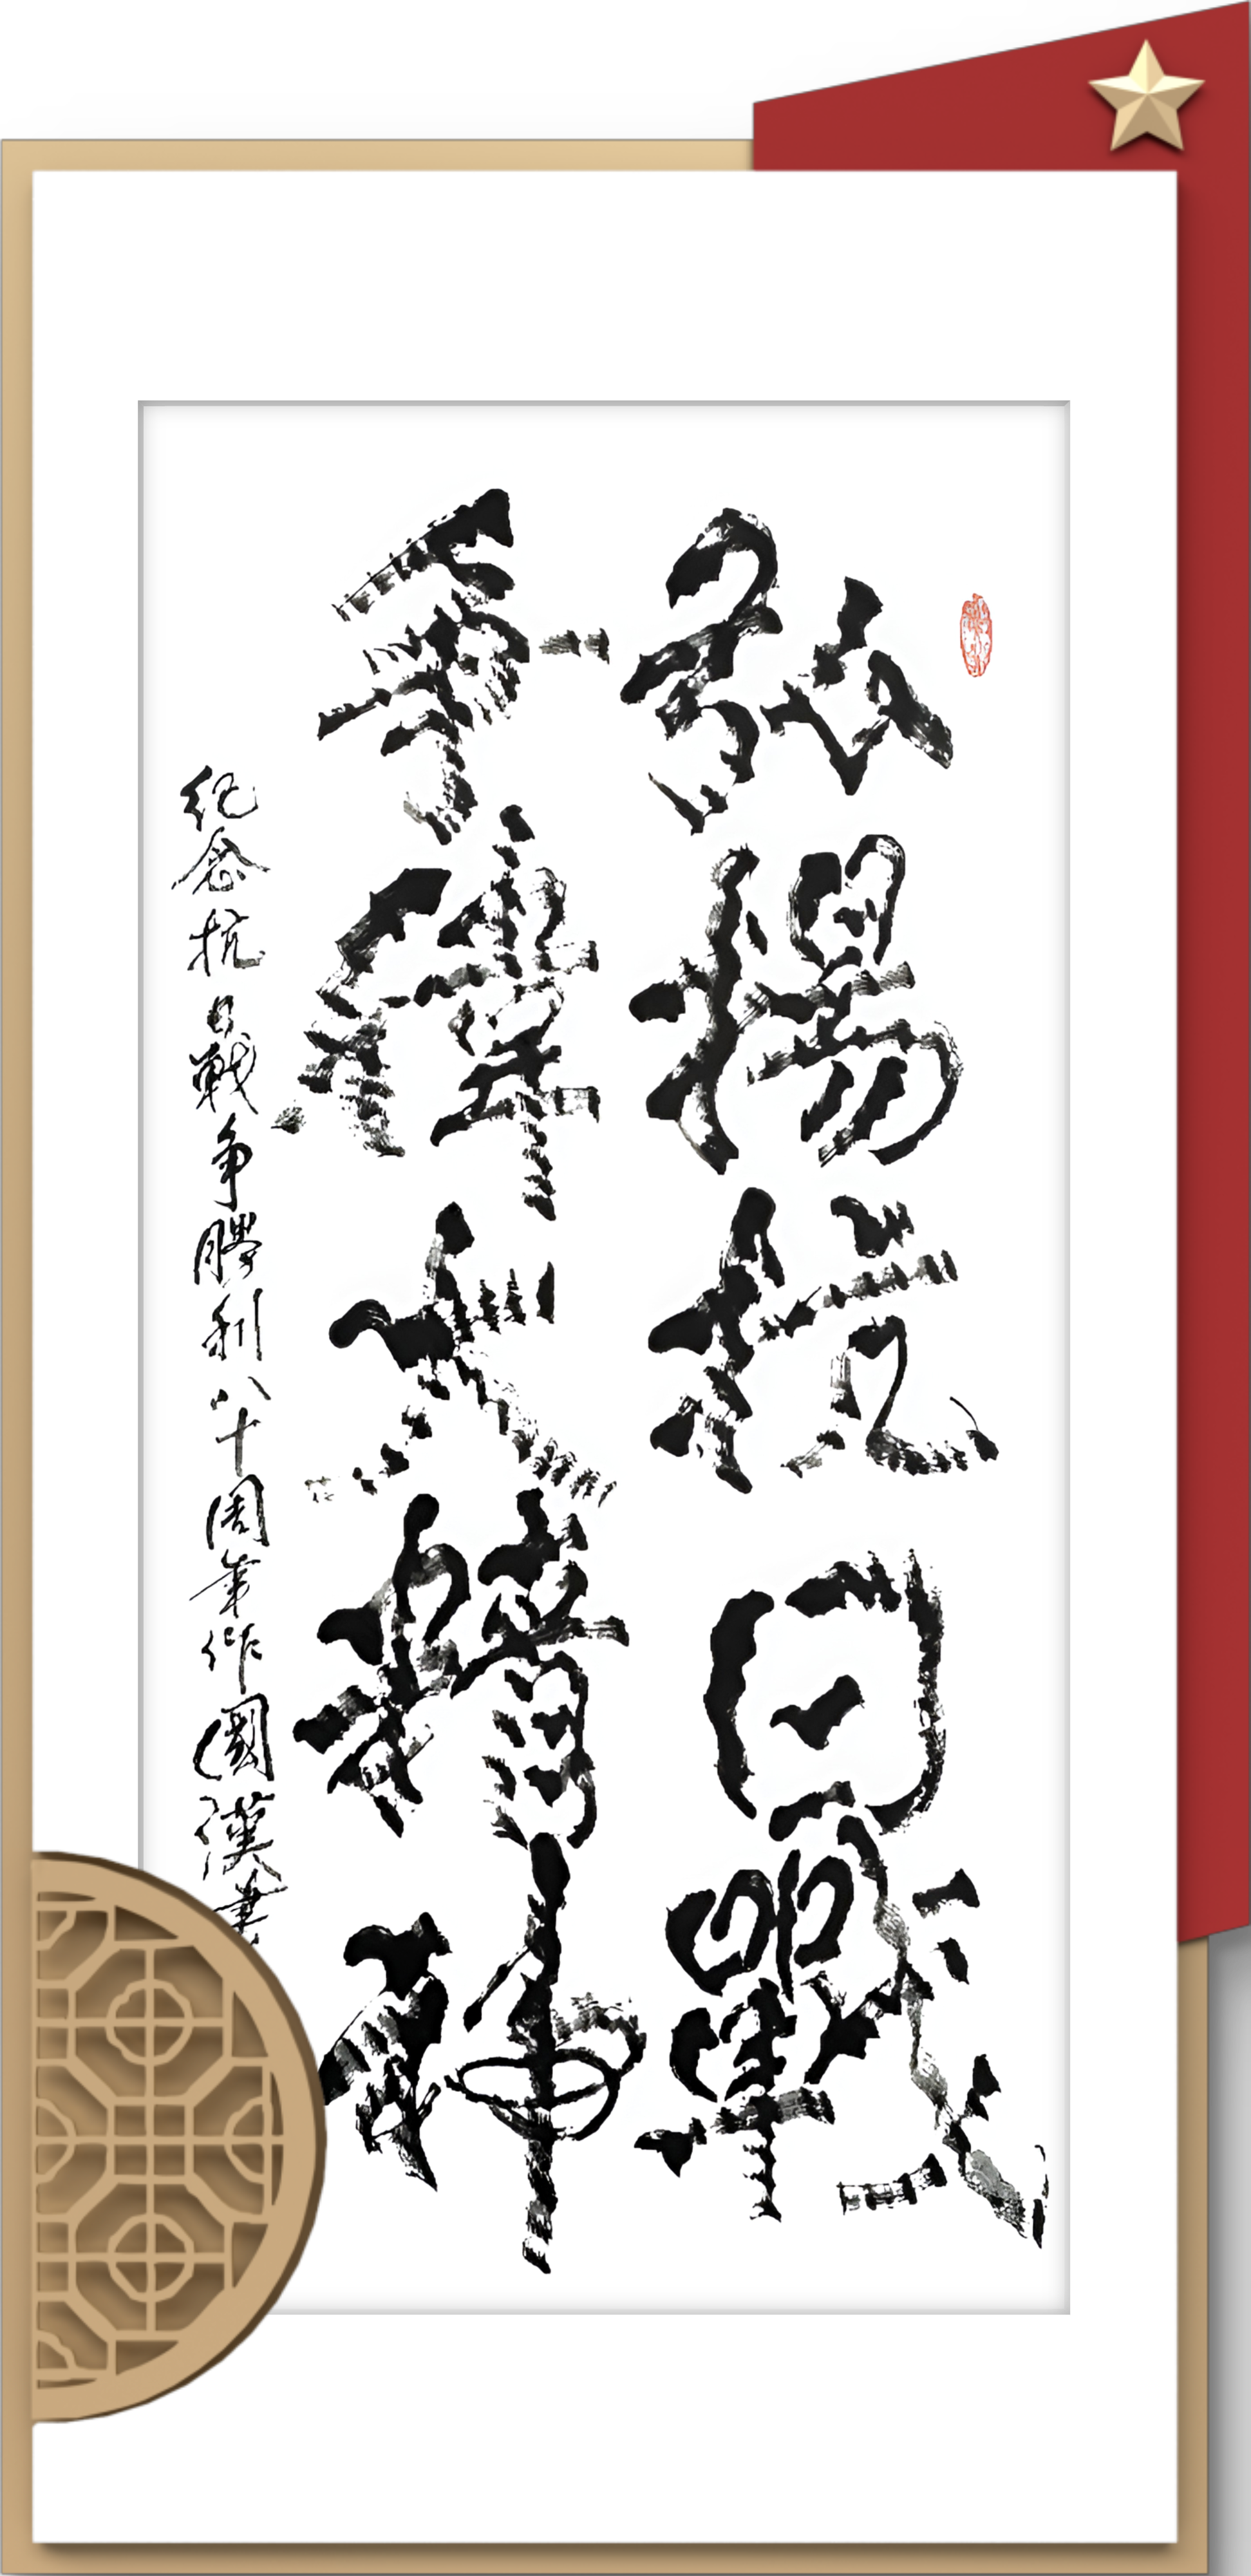 弘揚抗日戰
爭偉大精神
纪念抗日戰争勝利八十周年作國漢書